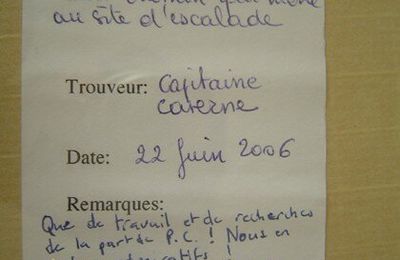 qui mène
au site d'escalade
Trouveur: Capitaine
Caverne
Date: 22 Juin 2006
Remarques:
Que de travail et de recherches
de la part de P.C.! Nous en